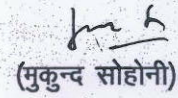 (मुकुन्द सोहोनी)